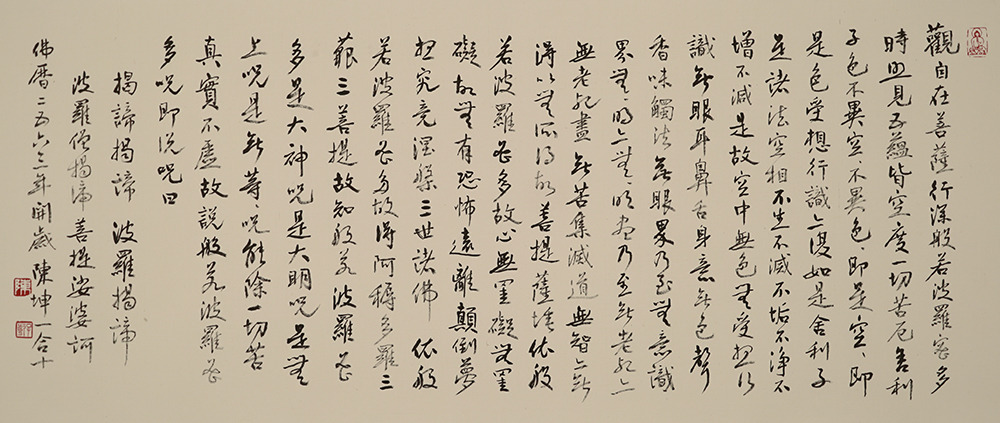 觀自在菩薩行深般若波羅蜜多
時照見五蘊皆空度一切苦厄舍利
子色不異空〻不異色即是空〻即
是色受想行識亦復如是舍利子
是諸法空相不生不滅不垢不淨不
增不減是故空中無色無受想行
識無眼耳鼻舌身意無色聲
香味觸法無眼界乃至無意識
界無〻明亦無〻明盡乃至無老死亦
無老死盡無苦集滅道無智亦無
得以無所得故菩提薩埵依般
若波羅蜜多故心無罣礙無罣
礙故無有恐怖遠離顛倒夢
想究竟涅槃三世諸佛依般
若波羅蜜多故得阿耨多羅三
藐三菩提故知般若波羅蜜
多是大神呪是大明呪是無
上呪是無等呪能除一切苦
真實不虛故說般若波羅蜜
多呪即說呪曰
揭諦揭諦 波羅揭諦
波羅僧揭諦 菩提娑婆訶
佛曆二五六三年開歲陳坤一合十